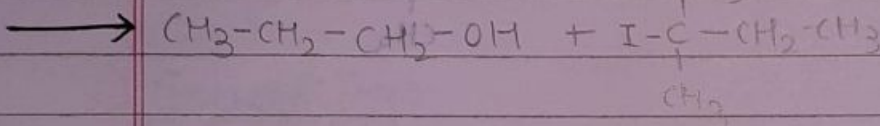 ⟶ CH3-CH2-CH2-OH + I-C-CH2-CH3
CH3